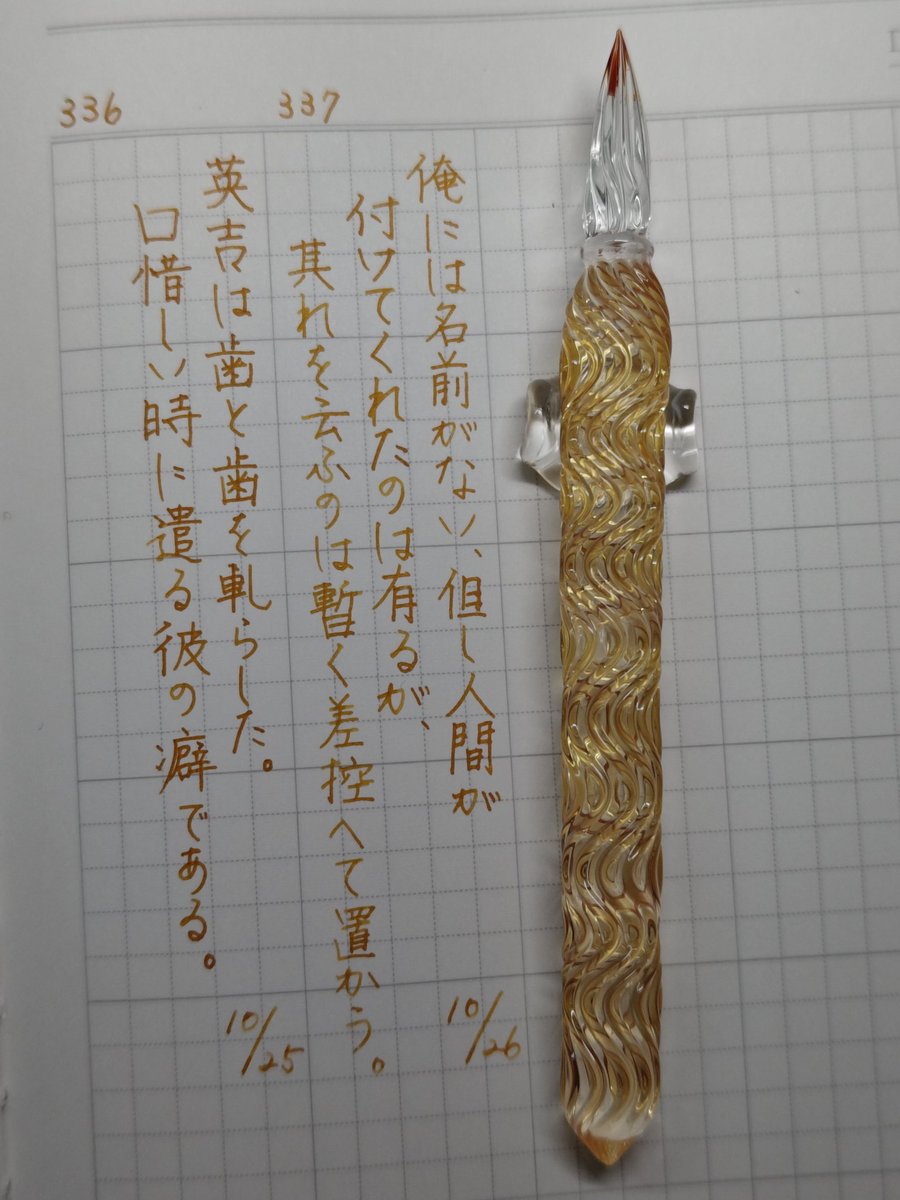 336
英吉は歯と歯を軋らした。
口惜しい時に遣る彼の癖である。
10/25
337
俺には名前がない、但し人間が
付けてくれたのは有るが、
其れを云ふのは暫く差控へて置かう。
10/26